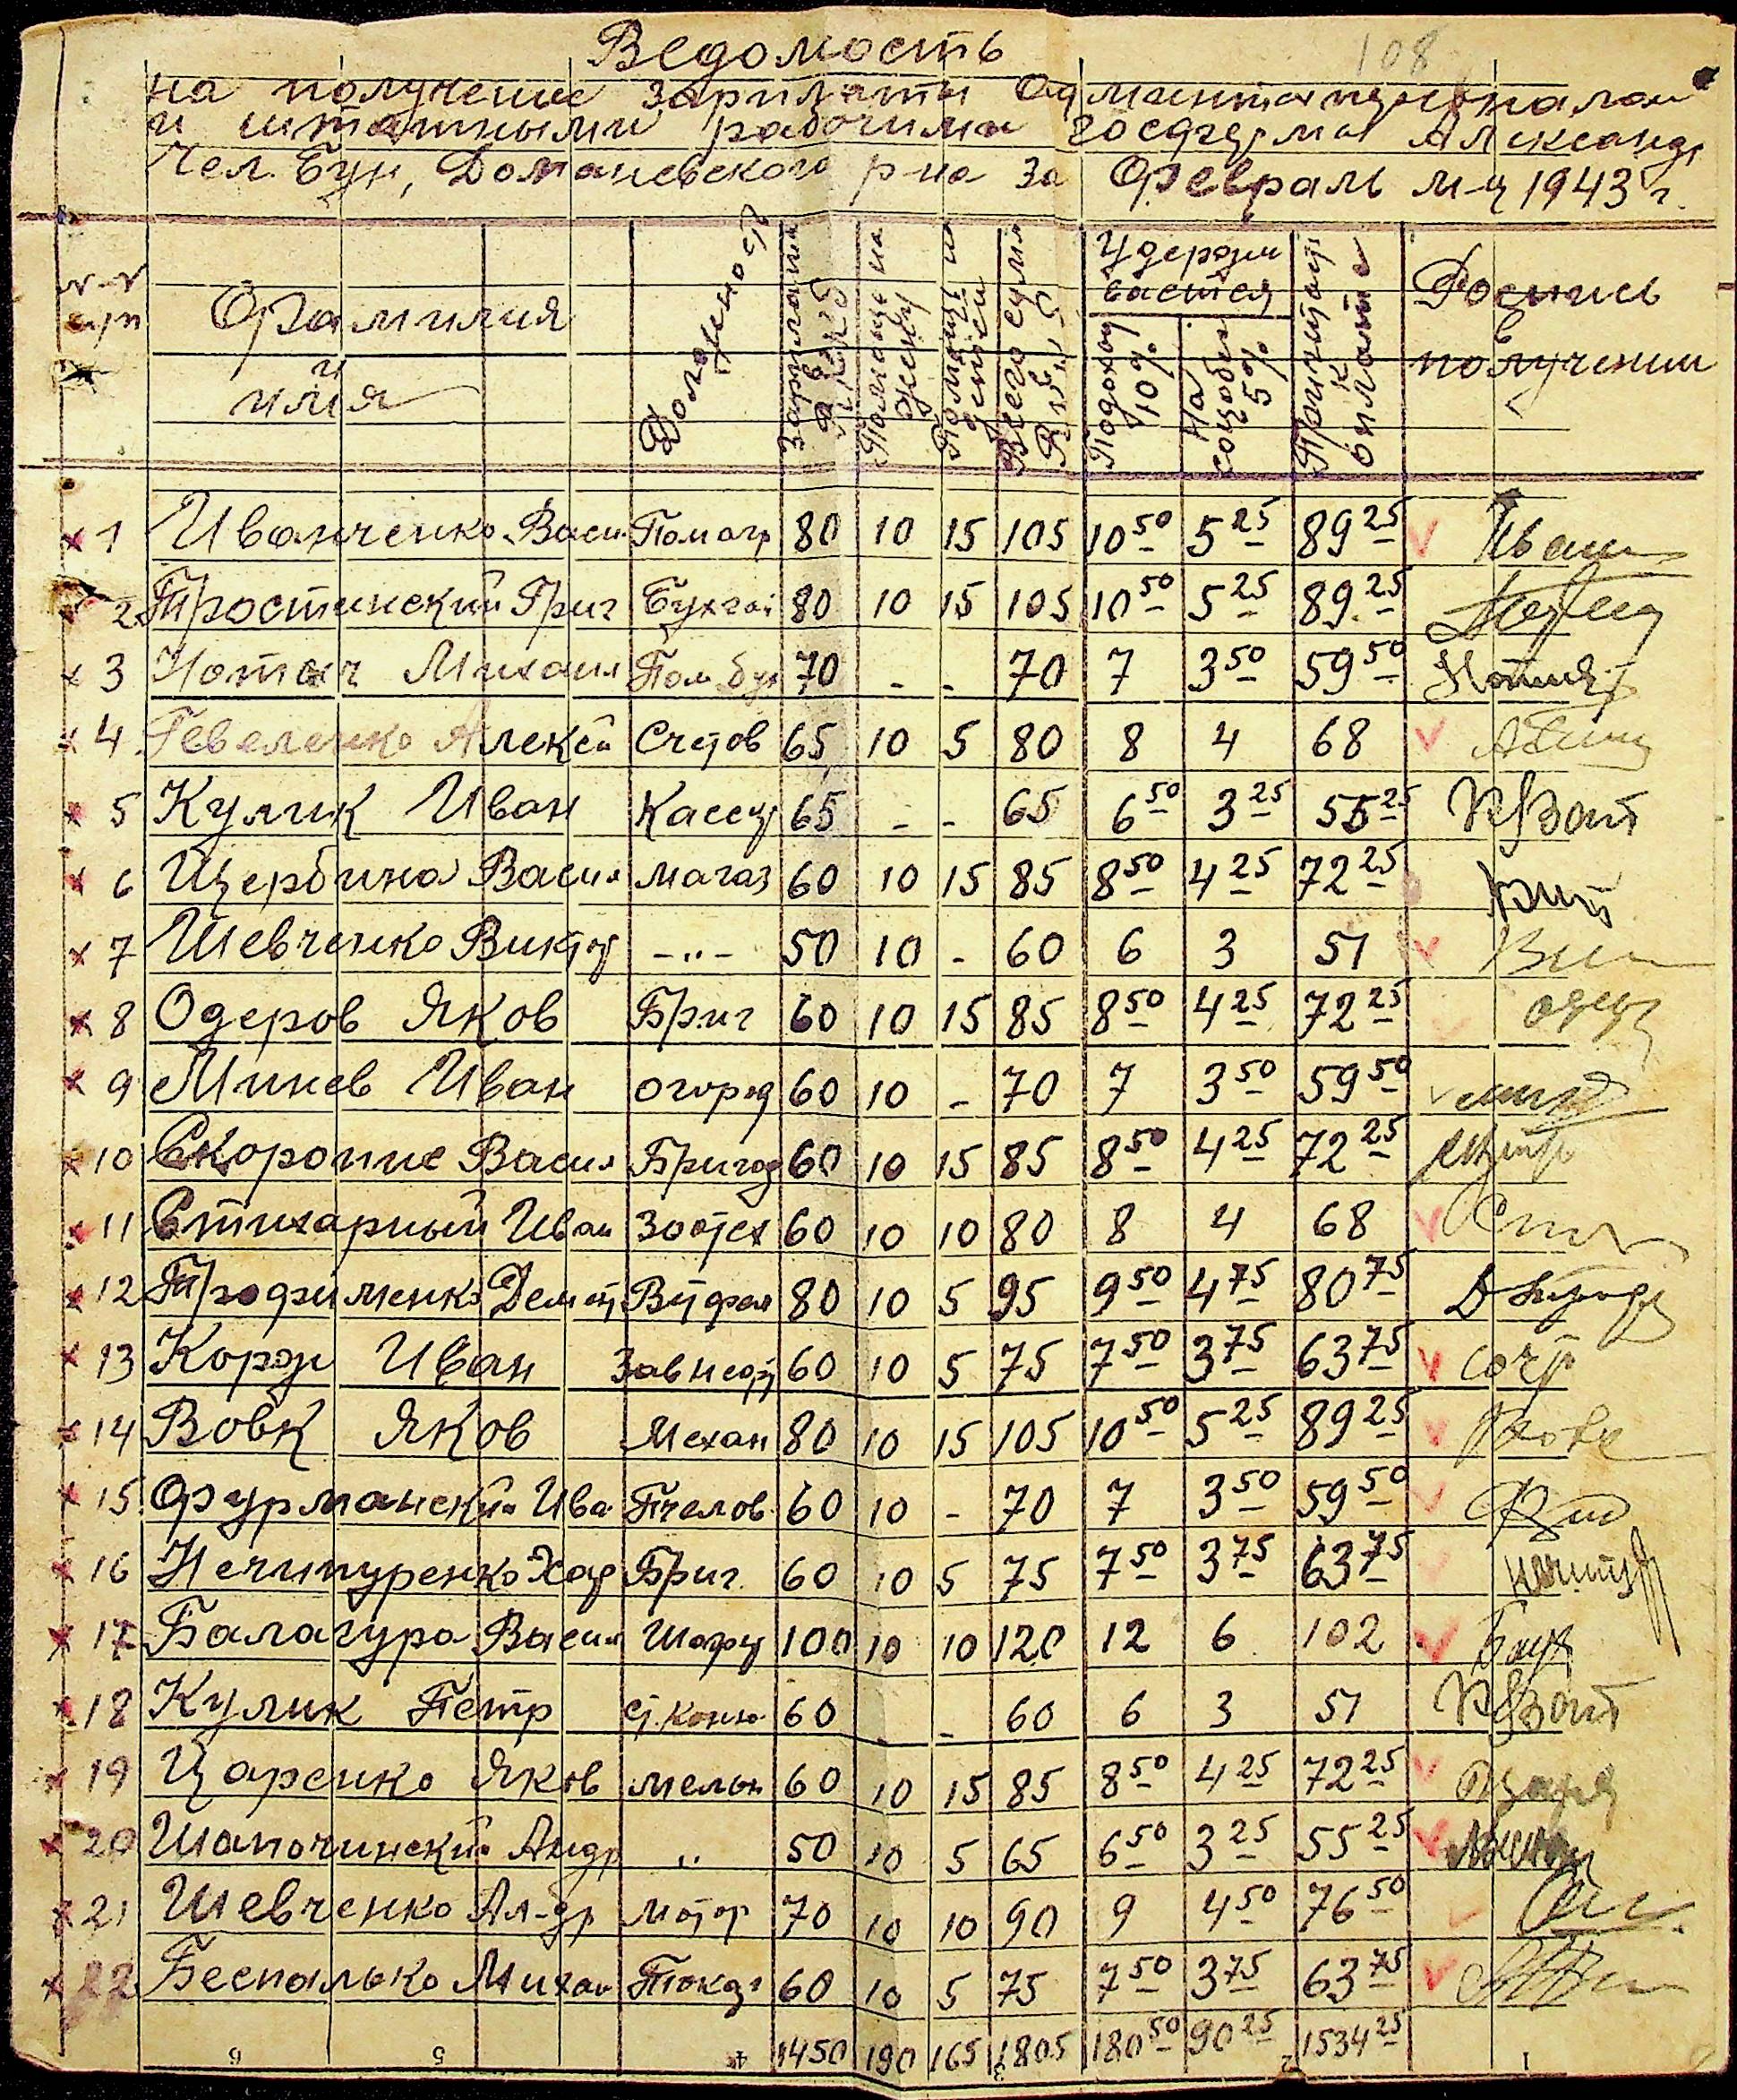 108
Ведомость
на получение зарплаты
и штатными рабочими госфермы Александр
Чел. Бун, Доманевского р-на за Февраль м-ц 1943 г.
Фамилия и имя
Зарплата
Помощь на жену
Помощь на детей
Всего сума
Удержи вается
Подоход 10%
На 5%
Причитает к выплате
Роспись в получении
1 Иванченко Васи. Пом агр 80 10 15 105 10 50 5 25 89 25 Иван
2 Тростинский Григ Бухгал 80 10 15 105 10 50 5 25 89 25
3 Нотич Михаил Пом бух 70 - - 70 7 3 50 59 50
4 Гевеленко Алексей Счетов 65 10 5 80 8 4 68
5 Кулик Иван Кассир 65 - - 65 6 50 3 25 55 25
6 Щербина Васил магаз 60 10 15 85 8 50 4 25 72 25
7 Шевченко Виктор -"- 50 10 - 60 6 3 51
8 Одеров Яков Бриг 60 10 15 85 8 50 4 25 72 25
9 Минев Иван огород 60 10 - 70 7 3 50 59 50
10 Скоропие Васил Бригад 60 10 15 85 8 50 4 25 72 25
11 Стихарный Иван Зоотех 60 10 10 80 8 4 68
12 Трофименко 80 10 5 95 9 50 4 75 80 75
13 Корж Иван 60 10 5 75 7 50 3 75 63 75
14 Вовк Яков Механ 80 10 15 105 10 50 5 25 89 25
15 Фурманский Ива Пчелов. 60 10 - 70 7 3 50 59 50
16 Нечипуренко Хар Бриг. 60 10 5 75 7 50 3 75 63 75
17 Балагура Васил Шофер 100 10 10 120 12 6 102
18 Кулик Петр ст. конюх 60 - - 60 6 3 51
19 Царенко Яков мельн 60 10 15 85 8 50 4 25 72 25
20 Шапочинский Андр " 50 10 5 65 6 50 3 25 55 25
21 Шевченко Ал-др мотор 70 10 10 90 9 4 50 76 50
22 Беспалько Михаи 60 10 5 75 7 50 3 75 63 75
1450 190 165 1805 180 50 90 25 1534 25
6 5 4 3 2 1